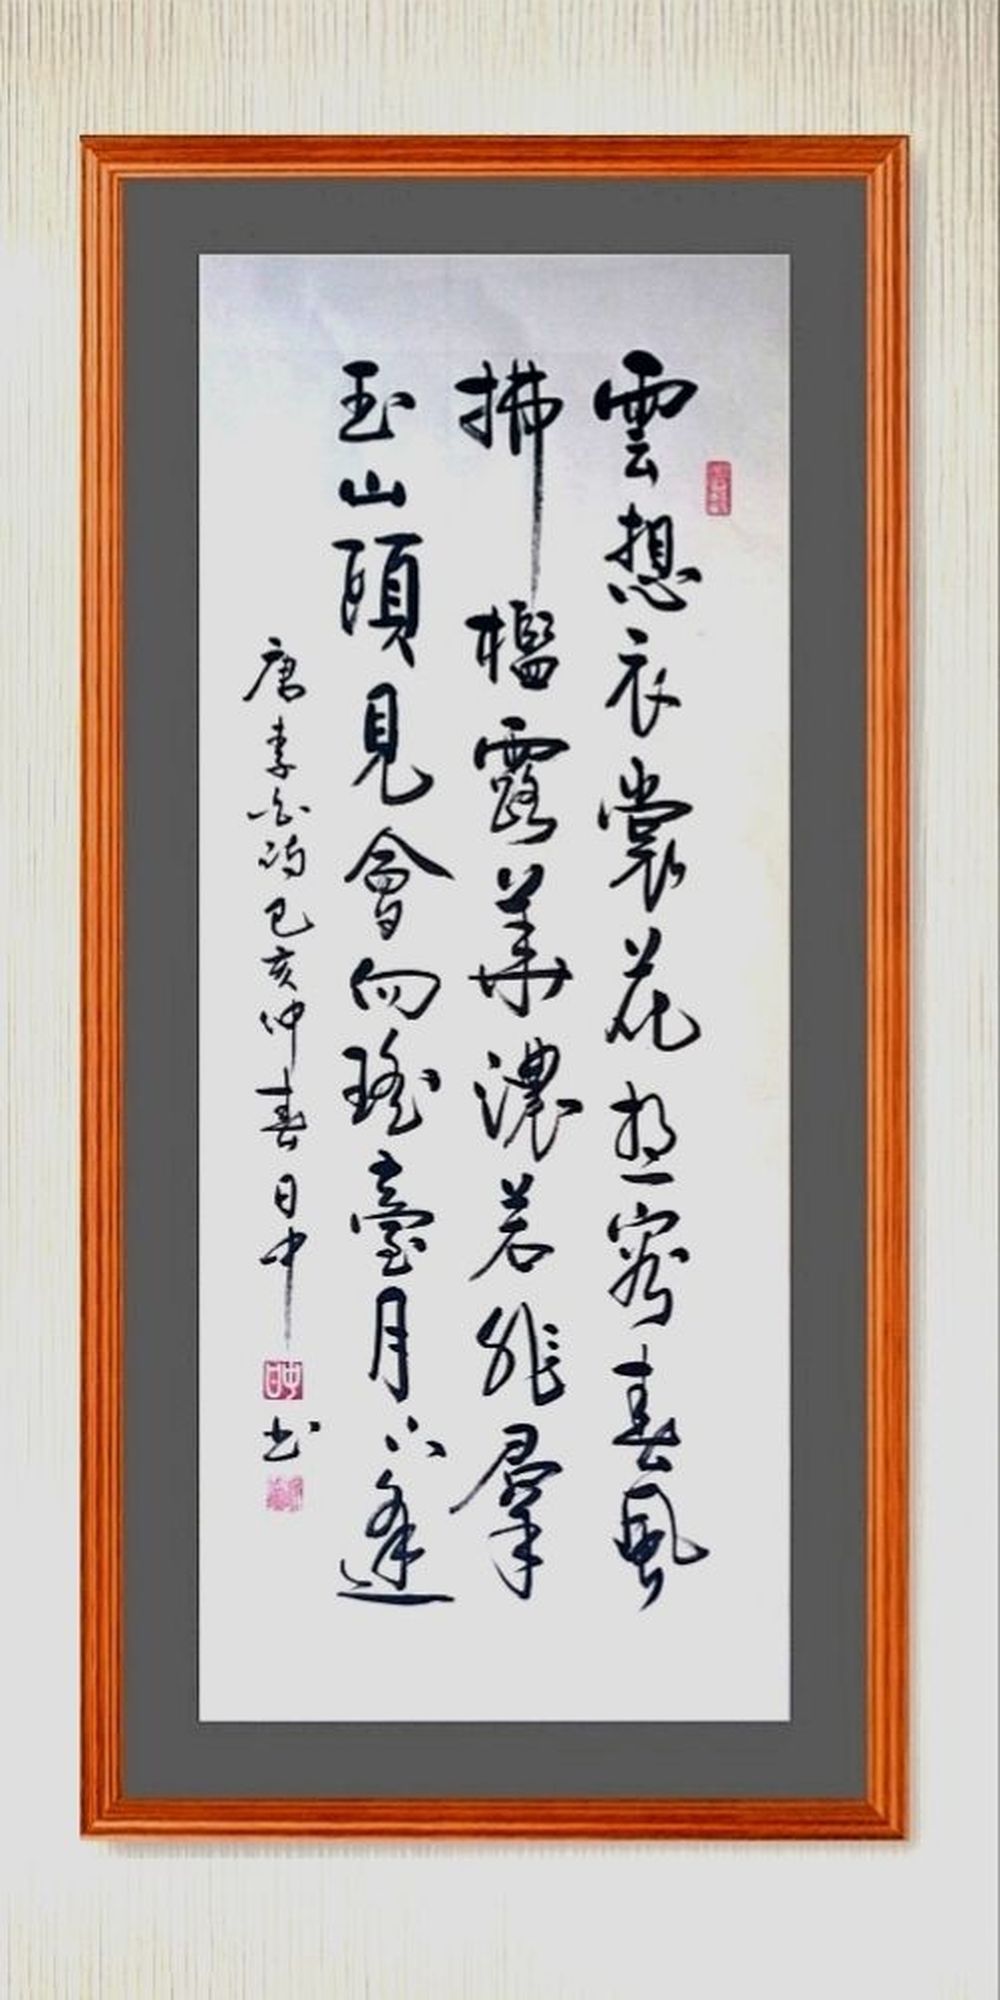 雲想衣裳花想容春風
拂檻露華濃若非羣
玉山頭見會向瑤臺月下逢
唐李白詩己亥仲春日中书